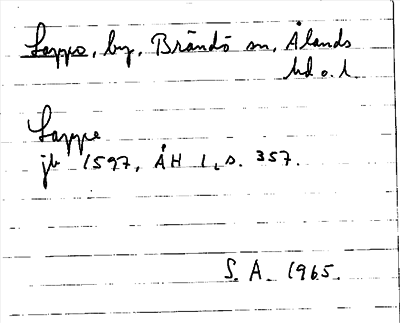 Lappo, by, Brändö sn, Ålands
hd o. l.
Lappe
jb 1597, ÅH 1, s. 357.
S. A. 1965.